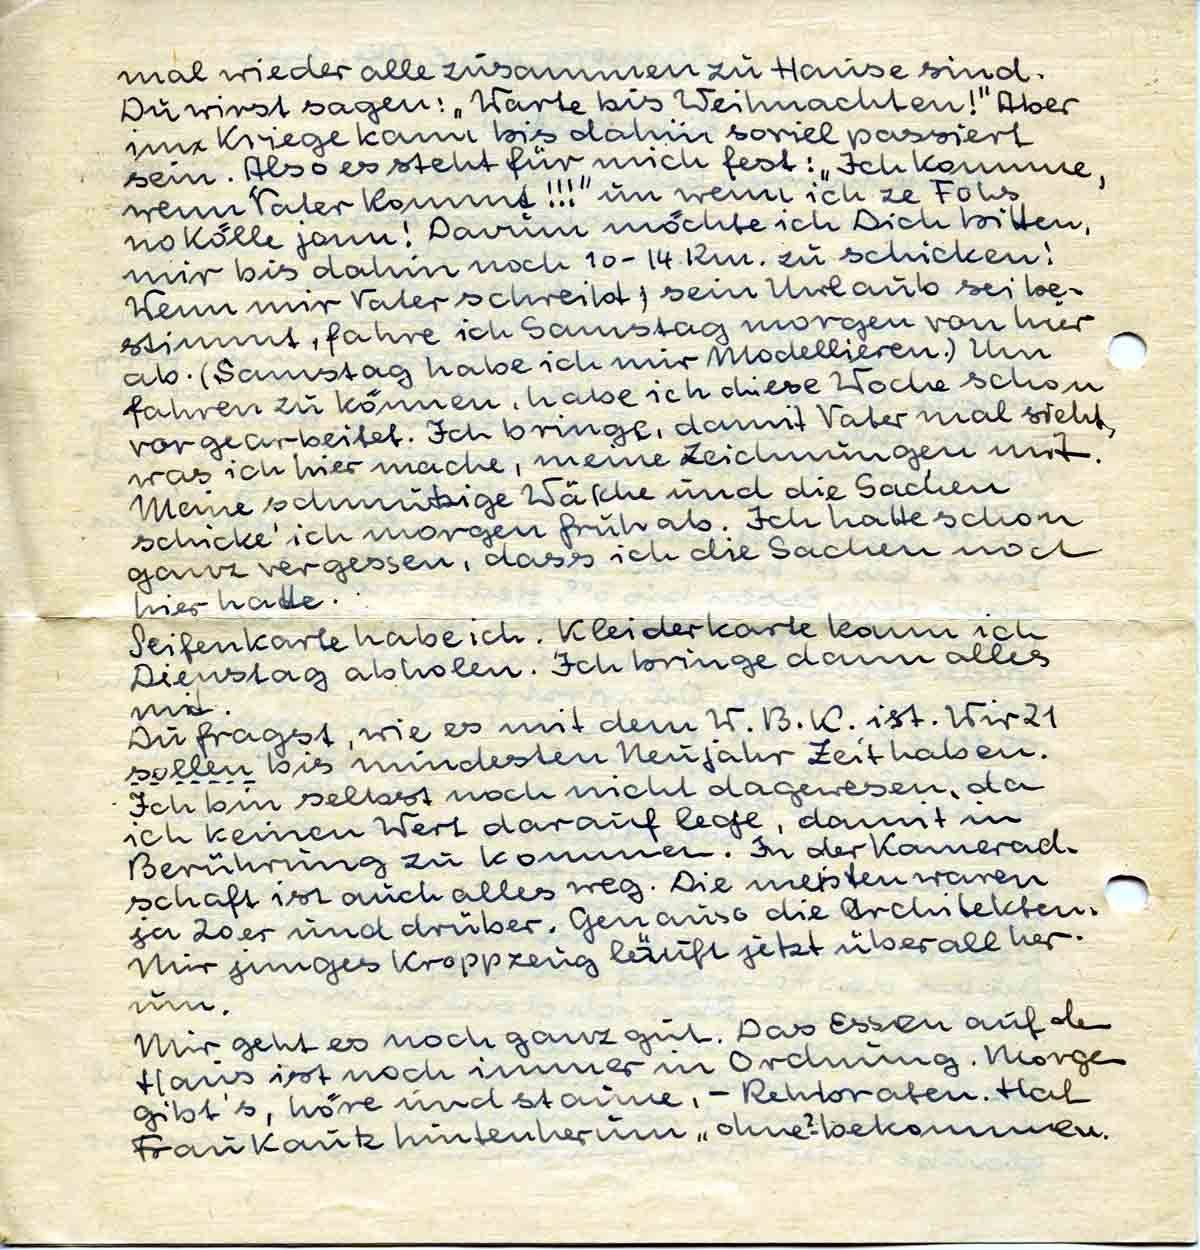 mal wieder alle zusammen zu Hause sind.
Du wirst sagen: „Warte bis Weihnachten!" Aber
im Kriege kann bis dahin soviel passiert
sein. Also es steht für mich fest: „Ich komme,
wenn Vater kommt!!!" un wenn ich ze Fohs
no Kölle jonn! Darum möchte ich Dich bitten,
mir bis dahin noch 10-14 Rm. zu schicken!
Wenn mir Vater schreibt, sein Urlaub sei be-
stimmt, fahre ich Samstag morgen von hier
ab. (Samstag habe ich nur Modellieren.) Um
fahren zu können, habe ich diese Woche schon
vorgearbeitet. Ich bringe, damit Vater mal sieht,
was ich hier mache, meine Zeichnungen mit.
Meine schmutzige Wäsche und die Sachen
schicke ich morgen früh ab. Ich hatte schon
ganz vergessen, dass ich die Sachen noch
hier hatte.
Seifenkarte habe ich. Kleiderkarte kann ich
Dienstag abholen. Ich bringe dann alles
mit.
Du fragst, wie es mit dem W.B.K. ist. Wir 21
sollen bis mindesten Neujahr Zeit haben.
Ich bin selbst noch nicht dagewesen, da
ich keinen Wert darauf lege, damit in
Berührung zu kommen. In der Kamerad-
schaft ist auch alles weg. Die meisten waren
ja 20er und drüber. Genauso die Architekten.
Nur junges Kroppzeug läuft jetzt überall her-
um.
Mir geht es noch ganz gut. Das Essen auf de
Haus ist noch immer in Ordnung. Morge
gibt's, höre und staune, – Rehbraten. Hat
Frau Kautz hintenherum „ohne" bekommen.